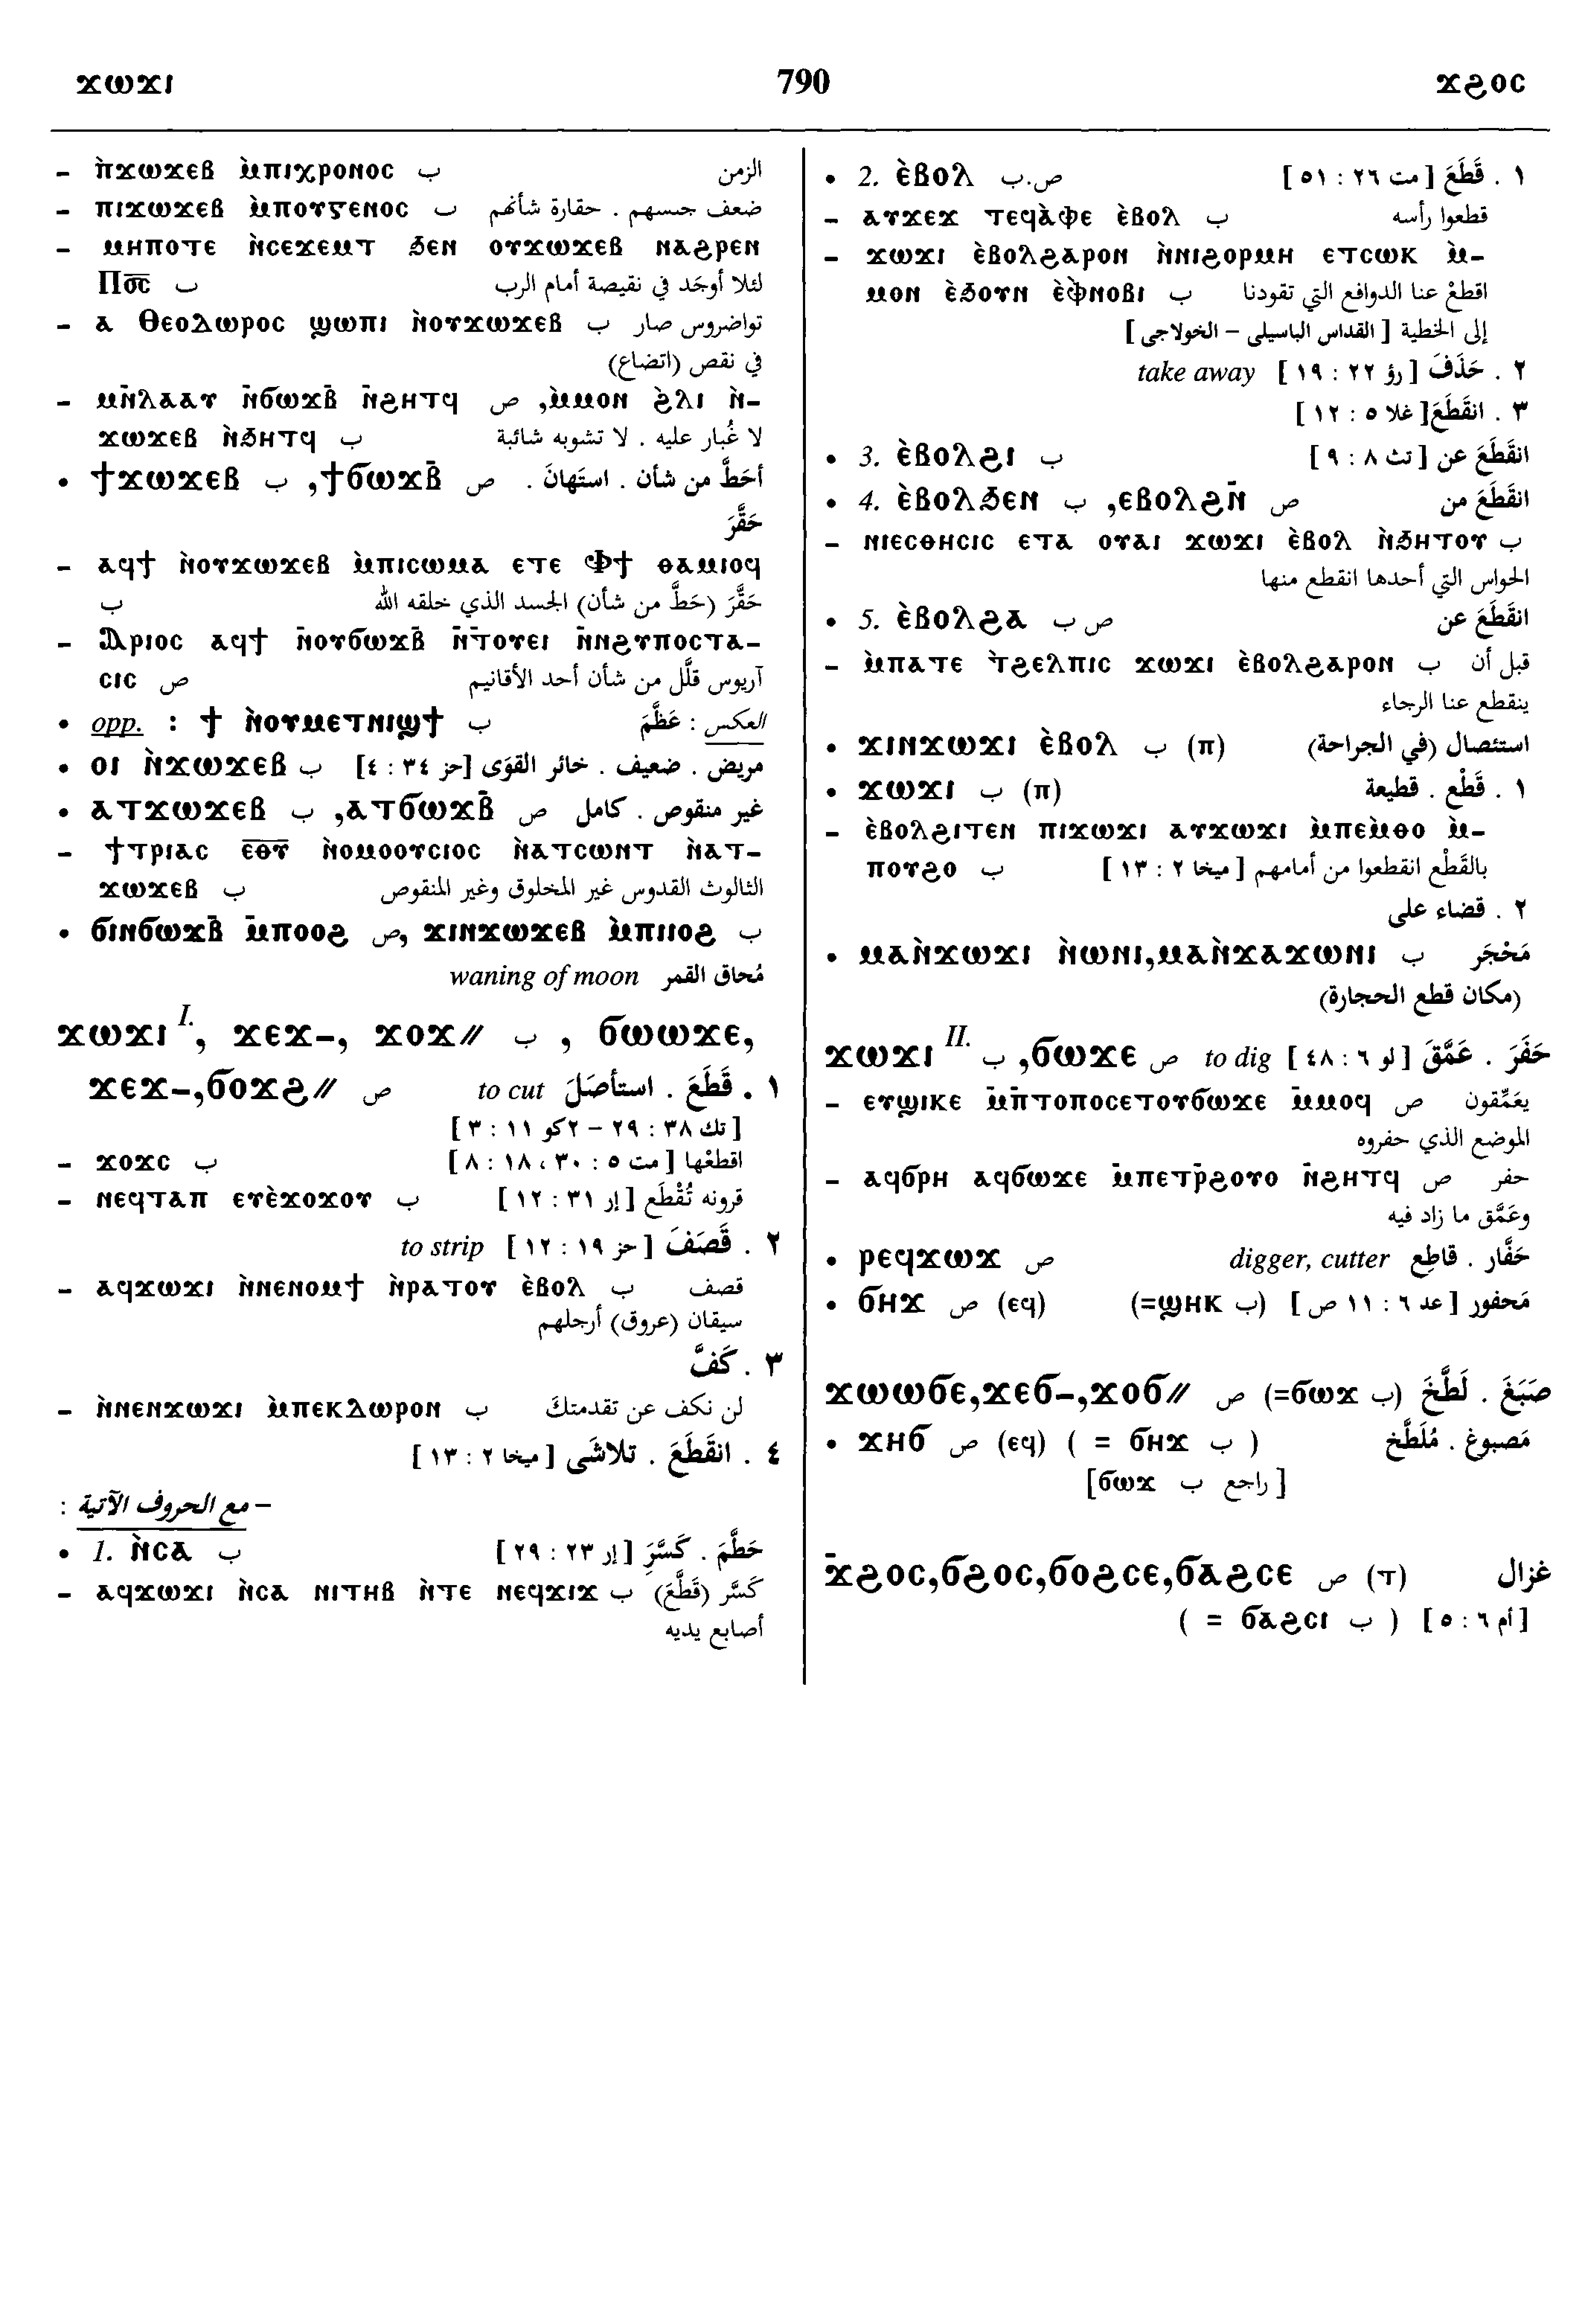 ϫⲱϫⲓ 790 ϫϩⲟⲥ
– ⲛ̀ϫⲱϫⲉⲃ ⲙ̀ⲡⲓⲭⲣⲟⲛⲟⲥ ب الزمن
– ⲡⲓϫⲱϫⲉⲃ ⲙ̀ⲡⲟⲩⲅⲉⲛⲟⲥ ب ضعف جنسهم . حقارة شأنهم
– ⲙⲏⲡⲟⲧⲉ ⲛ̀ⲥⲉϫⲉⲙⲧ ϧⲉⲛ ⲟⲩϫⲱϫⲉⲃ ⲛⲁϩⲣⲉⲛ
Ⲡⲟ̅ⲥ̅ ب لئلا أوجَد في نقيصة أمام الرب
– ⲁ Ⲑⲉⲟⲇⲱⲣⲟⲥ ϣⲱⲡⲓ ⲛ̀ⲟⲩϫⲱϫⲉⲃ ب تواضروس صار
في نقص (اتضاع)
– ⲙⲛ̄ⲗⲁⲁⲩ ⲛ̄ϭⲱϫⲃ̄ ⲛ̄ϩⲏⲧϥ ص ,ⲙ̀ⲙⲟⲛ ϩ̀ⲗⲓ ⲛ̀–
ϫⲱϫⲉⲃ ⲛ̀ϧⲏⲧϥ ب لا غُبار عليه . لا تشوبه شائبة
• ϯϫⲱϫⲉⲃ ب ,ϯϭⲱϫⲃ̄ ص أحَطَّ من شأن . استَهانَ .
حَقَّرَ
– ⲁϥϯ ⲛ̀ⲟⲩϫⲱϫⲉⲃ ⲙ̀ⲡⲓⲥⲱⲙⲁ ⲉⲧⲉ Ⲫϯ ⲑⲁⲙⲓⲟϥ
ب حَقَّرَ (حَطَّ من شأن) الجسد الذي خلقه الله
– Ⲁⲣⲓⲟⲥ ⲁϥϯ ⲛ̄ⲟⲩϭⲱϫⲃ̄ ⲛ̄ⲧⲟⲩⲉⲓ ⲛ̄ⲛϩⲩⲡⲟⲥⲧⲁ–
ⲥⲓⲥ ص آريوس قلَّل من شأن أحد الأقانيم
• opp. : ϯ ⲛ̀ⲟⲩⲙⲉⲧⲛⲓϣϯ ب العكس : عَظَّمَ
• ⲟⲓ ⲛ̀ϫⲱϫⲉⲃ ب مريض . ضعيف . خائر القوَى [حز ٣٤ : ٤]
• ⲁⲧϫⲱϫⲉⲃ ب ,ⲁⲧϭⲱϫⲃ̄ ص غير منقوص . كامل
– ϯⲧⲣⲓⲁⲥ ⲉ̅ⲑ̅ⲩ̅ ⲛ̀ⲟⲙⲟⲟⲩⲥⲓⲟⲥ ⲛ̀ⲁⲧⲥⲱⲛⲧ ⲛ̀ⲁⲧ–
ϫⲱϫⲉⲃ ب الثالوث القدوس غير المخلوق وغير المنقوص
• ϭⲓⲛϭⲱϫⲃ̄ ⲙ̄ⲡⲟⲟϩ ص, ϫⲓⲛϫⲱϫⲉⲃ ⲙ̀ⲡⲓⲓⲟϩ ب
مُحاق القمر waning of moon
ϫⲱϫⲓ I., ϫⲉϫ–, ϫⲟϫ// ب , ϭⲱⲱϫⲉ,
ϫⲉϫ–,ϭⲟϫϩ// ص to cut ١ . قَطَعَ . استأصَلَ
[ تك ٣٨ : ٢٩ – ٢كو ١١ : ٣ ]
– ϫⲟϫⲥ ب اقطعْها [ مت ٥ : ٣٠ ، ١٨ : ٨ ]
– ⲛⲉϥⲧⲁⲡ ⲉⲩⲉ̀ϫⲟϫⲟⲩ ب قرونه تُقْطَع [ إر ٣١ : ١٢ ]
٢ . قَصَفَ [ حز ١٩ : ١٢ ] to strip
– ⲁϥϫⲱϫⲓ ⲛ̀ⲛⲉⲛⲟⲙϯ ⲛ̀ⲣⲁⲧⲟⲩ ⲉ̀ⲃⲟⲗ ب قصف
سيقان (عروق) أرجلهم
٣ . كَفَّ
– ⲛ̀ⲛⲉⲛϫⲱϫⲓ ⲙ̀ⲡⲉⲕⲇⲱⲣⲟⲛ ب لن نكف عن تقدمتك
٤ . انقَطَعَ . تلاشَى [ ميخا ٢ : ١٣ ]
– مع الحروف الآتية :
• 1. ⲛ̀ⲥⲁ ب حَطَّمَ . كَسَّرَ [ إر ٢٣ : ٢٩ ]
– ⲁϥϫⲱϫⲓ ⲛ̀ⲥⲁ ⲛⲓⲧⲏⲃ ⲛ̀ⲧⲉ ⲛⲉϥϫⲓϫ ب كسَّر (قطَّع)
أصابع يديه
• 2. ⲉ̀ⲃⲟⲗ ص.ب ١ . قَطَعَ [ مت ٢٦ : ٥١ ]
– ⲁⲩϫⲉϫ ⲧⲉϥⲁ̀ⲫⲉ ⲉ̀ⲃⲟⲗ ب قطعوا رأسه
– ϫⲱϫⲓ ⲉ̀ⲃⲟⲗϩⲁⲣⲟⲛ ⲛ̀ⲛⲓϩⲟⲣⲙⲏ ⲉⲧⲥⲱⲕ ⲙ̀–
ⲙⲟⲛ ⲉ̀ϧⲟⲩⲛ ⲉ̀ⲫ̀ⲛⲟⲃⲓ ب اقطعْ عنا الدوافع التي تقودنا
إلى الخطية [ القداس الباسيلى – الخولاجى ]
٢ . حَذَفَ [ رؤ ٢٢ : ١٩ ] take away
٣ . انقَطَعَ[ غلا ٥ : ١٢ ]
• 3. ⲉ̀ⲃⲟⲗϩⲓ ب انقَطَعَ عن [ تث ٨ : ٩ ]
• 4. ⲉ̀ⲃⲟⲗϧⲉⲛ ب ,ⲉⲃⲟⲗϩⲛ̄ ص انقَطَعَ من
– ⲛⲓⲉⲥⲑⲏⲥⲓⲥ ⲉⲧⲁ ⲟⲩⲁⲓ ϫⲱϫⲓ ⲉ̀ⲃⲟⲗ ⲛ̀ϧⲏⲧⲟⲩ ب
الحواس التي أحدها انقطع منها
• 5. ⲉ̀ⲃⲟⲗϩⲁ ص ب انقَطَعَ عن
– ⲙ̀ⲡⲁⲧⲉ ⲧ̀ϩⲉⲗⲡⲓⲥ ϫⲱϫⲓ ⲉ̀ⲃⲟⲗϩⲁⲣⲟⲛ ب قبل أن
ينقطع عنا الرجاء
• ϫⲓⲛϫⲱϫⲓ ⲉ̀ⲃⲟⲗ ب (ⲡ) استئصال (في الجراحة)
• ϫⲱϫⲓ ب (ⲡ) ١ . قَطْع . قطيعة
– ⲉ̀ⲃⲟⲗϩⲓⲧⲉⲛ ⲡⲓϫⲱϫⲓ ⲁⲩϫⲱϫⲓ ⲙ̀ⲡⲉⲙ̀ⲑⲟ ⲙ̀–
ⲡⲟⲩϩⲟ ب بالقَطْع انقطعوا من أمامهم [ ميخا ٢ : ١٣ ]
٢ . قضاء على
• ⲙⲁⲛ̀ϫⲱϫⲓ ⲛ̀ⲱⲛⲓ,ⲙⲁⲛ̀ϫⲁϫⲱⲛⲓ ب مَحْجَر
(مكان قطع الحجارة)
ϫⲱϫⲓ II. ب ,ϭⲱϫⲉ ص to dig حَفَرَ . عَمَّقَ [ لو ٦ : ٤٨ ]
– ⲉⲩϣⲓⲕⲉ ⲙ̄ⲡ̄ⲧⲟⲡⲟⲥⲉⲧⲟⲩϭⲱϫⲉ ⲙ̄ⲙⲟϥ ص يعَمِّقون
الموضع الذي حفروه
– ⲁϥϭⲣⲏ ⲁϥϭⲱϫⲉ ⲙ̄ⲡⲉⲧⲣ̄ϩⲟⲩⲟ ⲛ̄ϩⲏⲧϥ ص حفر
وعَمَّق ما زاد فيه
• ⲣⲉϥϫⲱϫ ص حَفَّار . قاطِع digger, cutter
• ϭⲏϫ ص (ⲉϥ) مَحفور [ عد ٦ : ١١ ص ] (ب ϣⲏⲕ=)
ϫⲱⲱϭⲉ,ϫⲉϭ–,ϫⲟϭ// ص (=ϭⲱϫ ب) صَبَغَ . لَطَّخَ
• ϫⲏϭ ص (ⲉϥ) ( = ϭⲏϫ ب ) مَصبوغ . مُلَطَّخ
[ راجع ب ϭⲱϫ]
ϫ̄ϩⲟⲥ,ϭϩⲟⲥ,ϭⲟϩⲥⲉ,ϭⲁϩⲥⲉ ص (ⲧ) غزال
[ أم ٦ : ٥ ] ( ب ϭⲁϩⲥⲓ = )